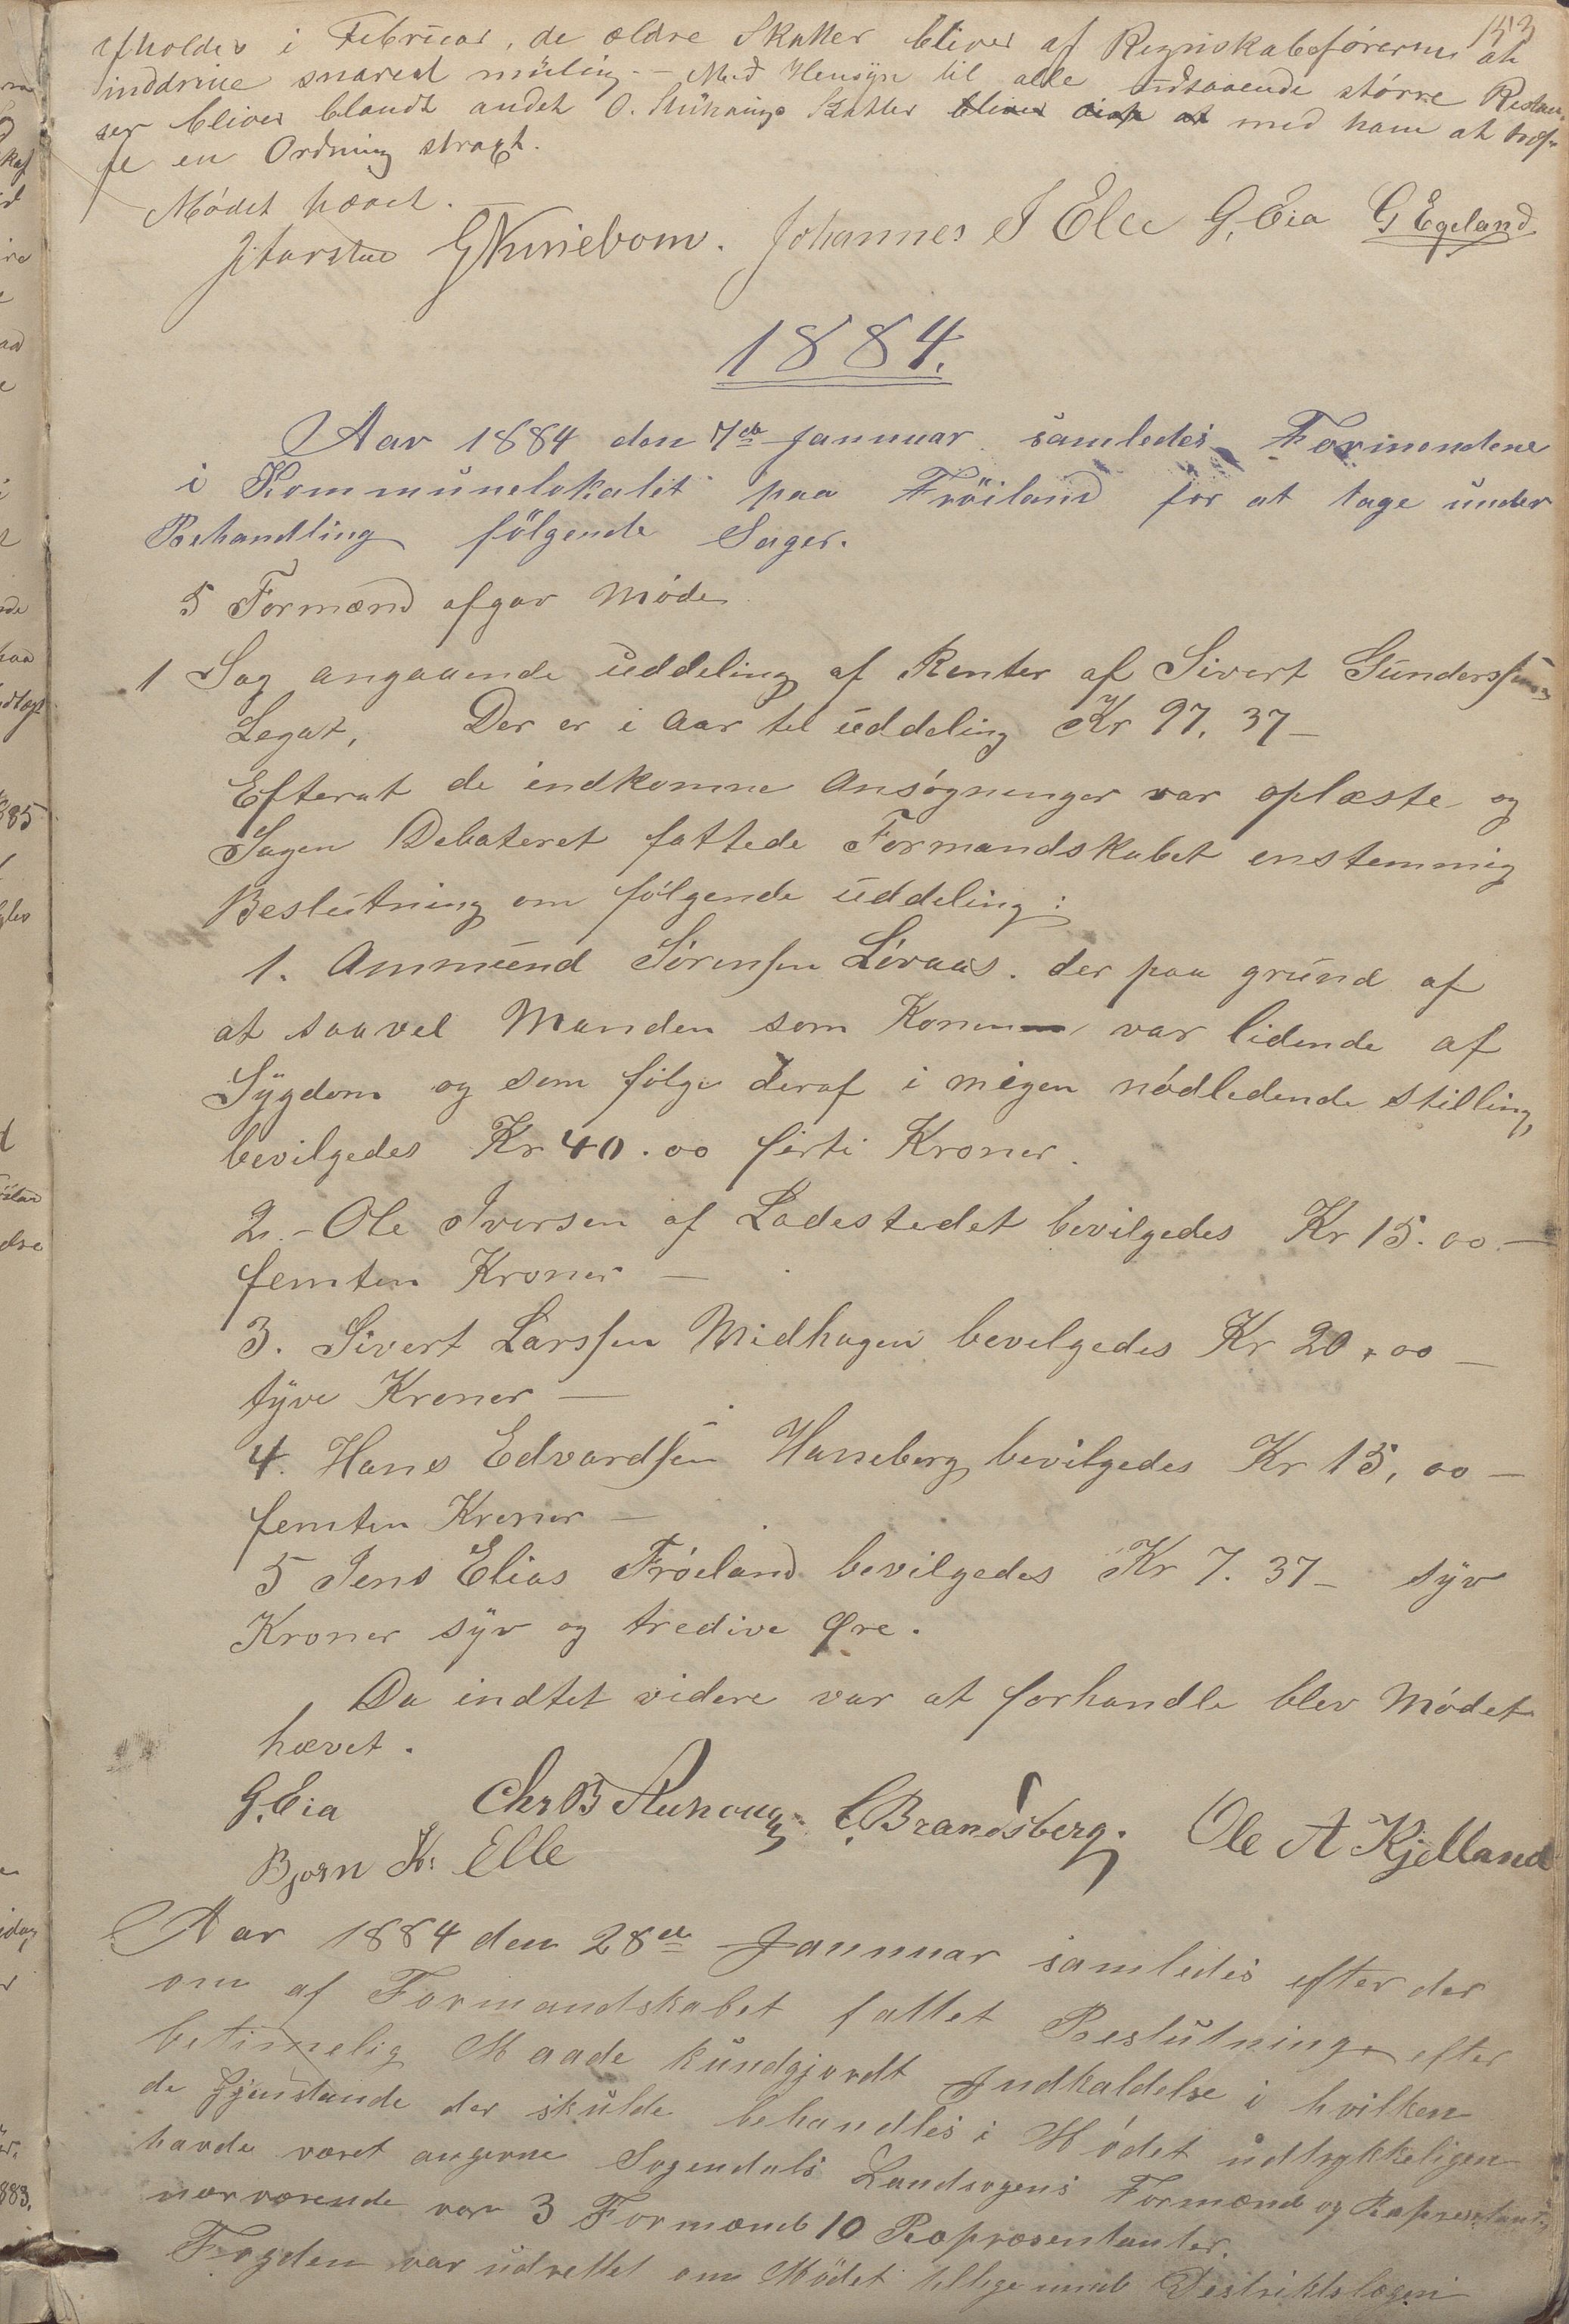 153
afholdes i Februar, de ældre Skatter bliver af Regnskabsføreren at
inddrive snarest muligt. – Med Hensyn til alle udstaaende større Restan-
ser bliver blandt andet O. Skatter med ham at træf-
fe en Ordning straxt.
Mødet hævet. –
Johannes J Elle G. Eia G Egeland
1884.
Aar 1884 den 7de Januar samledes Formendene
i Kommunelokalet paa Fröiland for at tage under
Behandling fölgende Sager.
5 Formænd afgav Møde
1 Sag angaaende uddeling af Renter af Sivert Gunderssens
Legat, Der er i Aar til uddeling Kr 97, 37 –
Efterat de indkomne Ansøgninger var oplæste og
Sagen Debateret fattede Formandskabet enstemmig
Beslutning om følgende uddeling:
1. Ammund Sørensen Løvaas. der paa grund af
at saavel Manden som Konen var lidende af
Sygdom og som følge deraf i megen nødledende stilling,
bevilgedes Kr 40.00 firti Kroner.
2. – Ole Iversen af Ladestedet bevilgedes Kr 15.00 –
femten Kroner –
3. Sivert Larssen Midhagen bevelgedes Kr 20,00 –
tyve Kroner –
4. Hans Edvardsen Haneberg bevilgedes Kr 15,00 –
femten Kroner –
5 Jens Elias Frøeland bevilgedes Kr 7. 37 – syv
Kroner syv og tredive Øre.
Da indtet videre var at forhandle blev Mødet
hævet.
G. Eia Chr B C. Brandsberg. Ole A Kjelland
Bjørn K: Elle
Aar 1884 den 28de Januar samledes efter der
om af Formandskabet fattet Beslutning efter
betimelig Maade kundgjordt Indkaldelse i hvilken
de Gjenstande der skulde behandles i Mødet udtrykkeligen
havde været angivne Sogendals Landsogens Formænd og Repræsentanter,
nærværende var 3 Formænd 10 Repræsentanter.
Fogden var udrettet om Mødet tillige med Destriktslægen